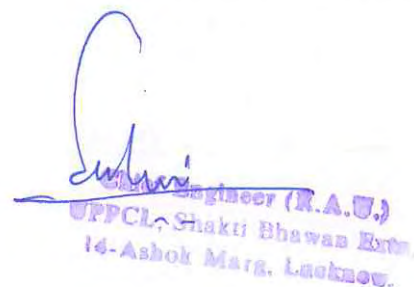 Engineer (R.A.U.)
UPPCL, Shakti Bhawan Extn.
14-Ashok Marg, Lucknow.